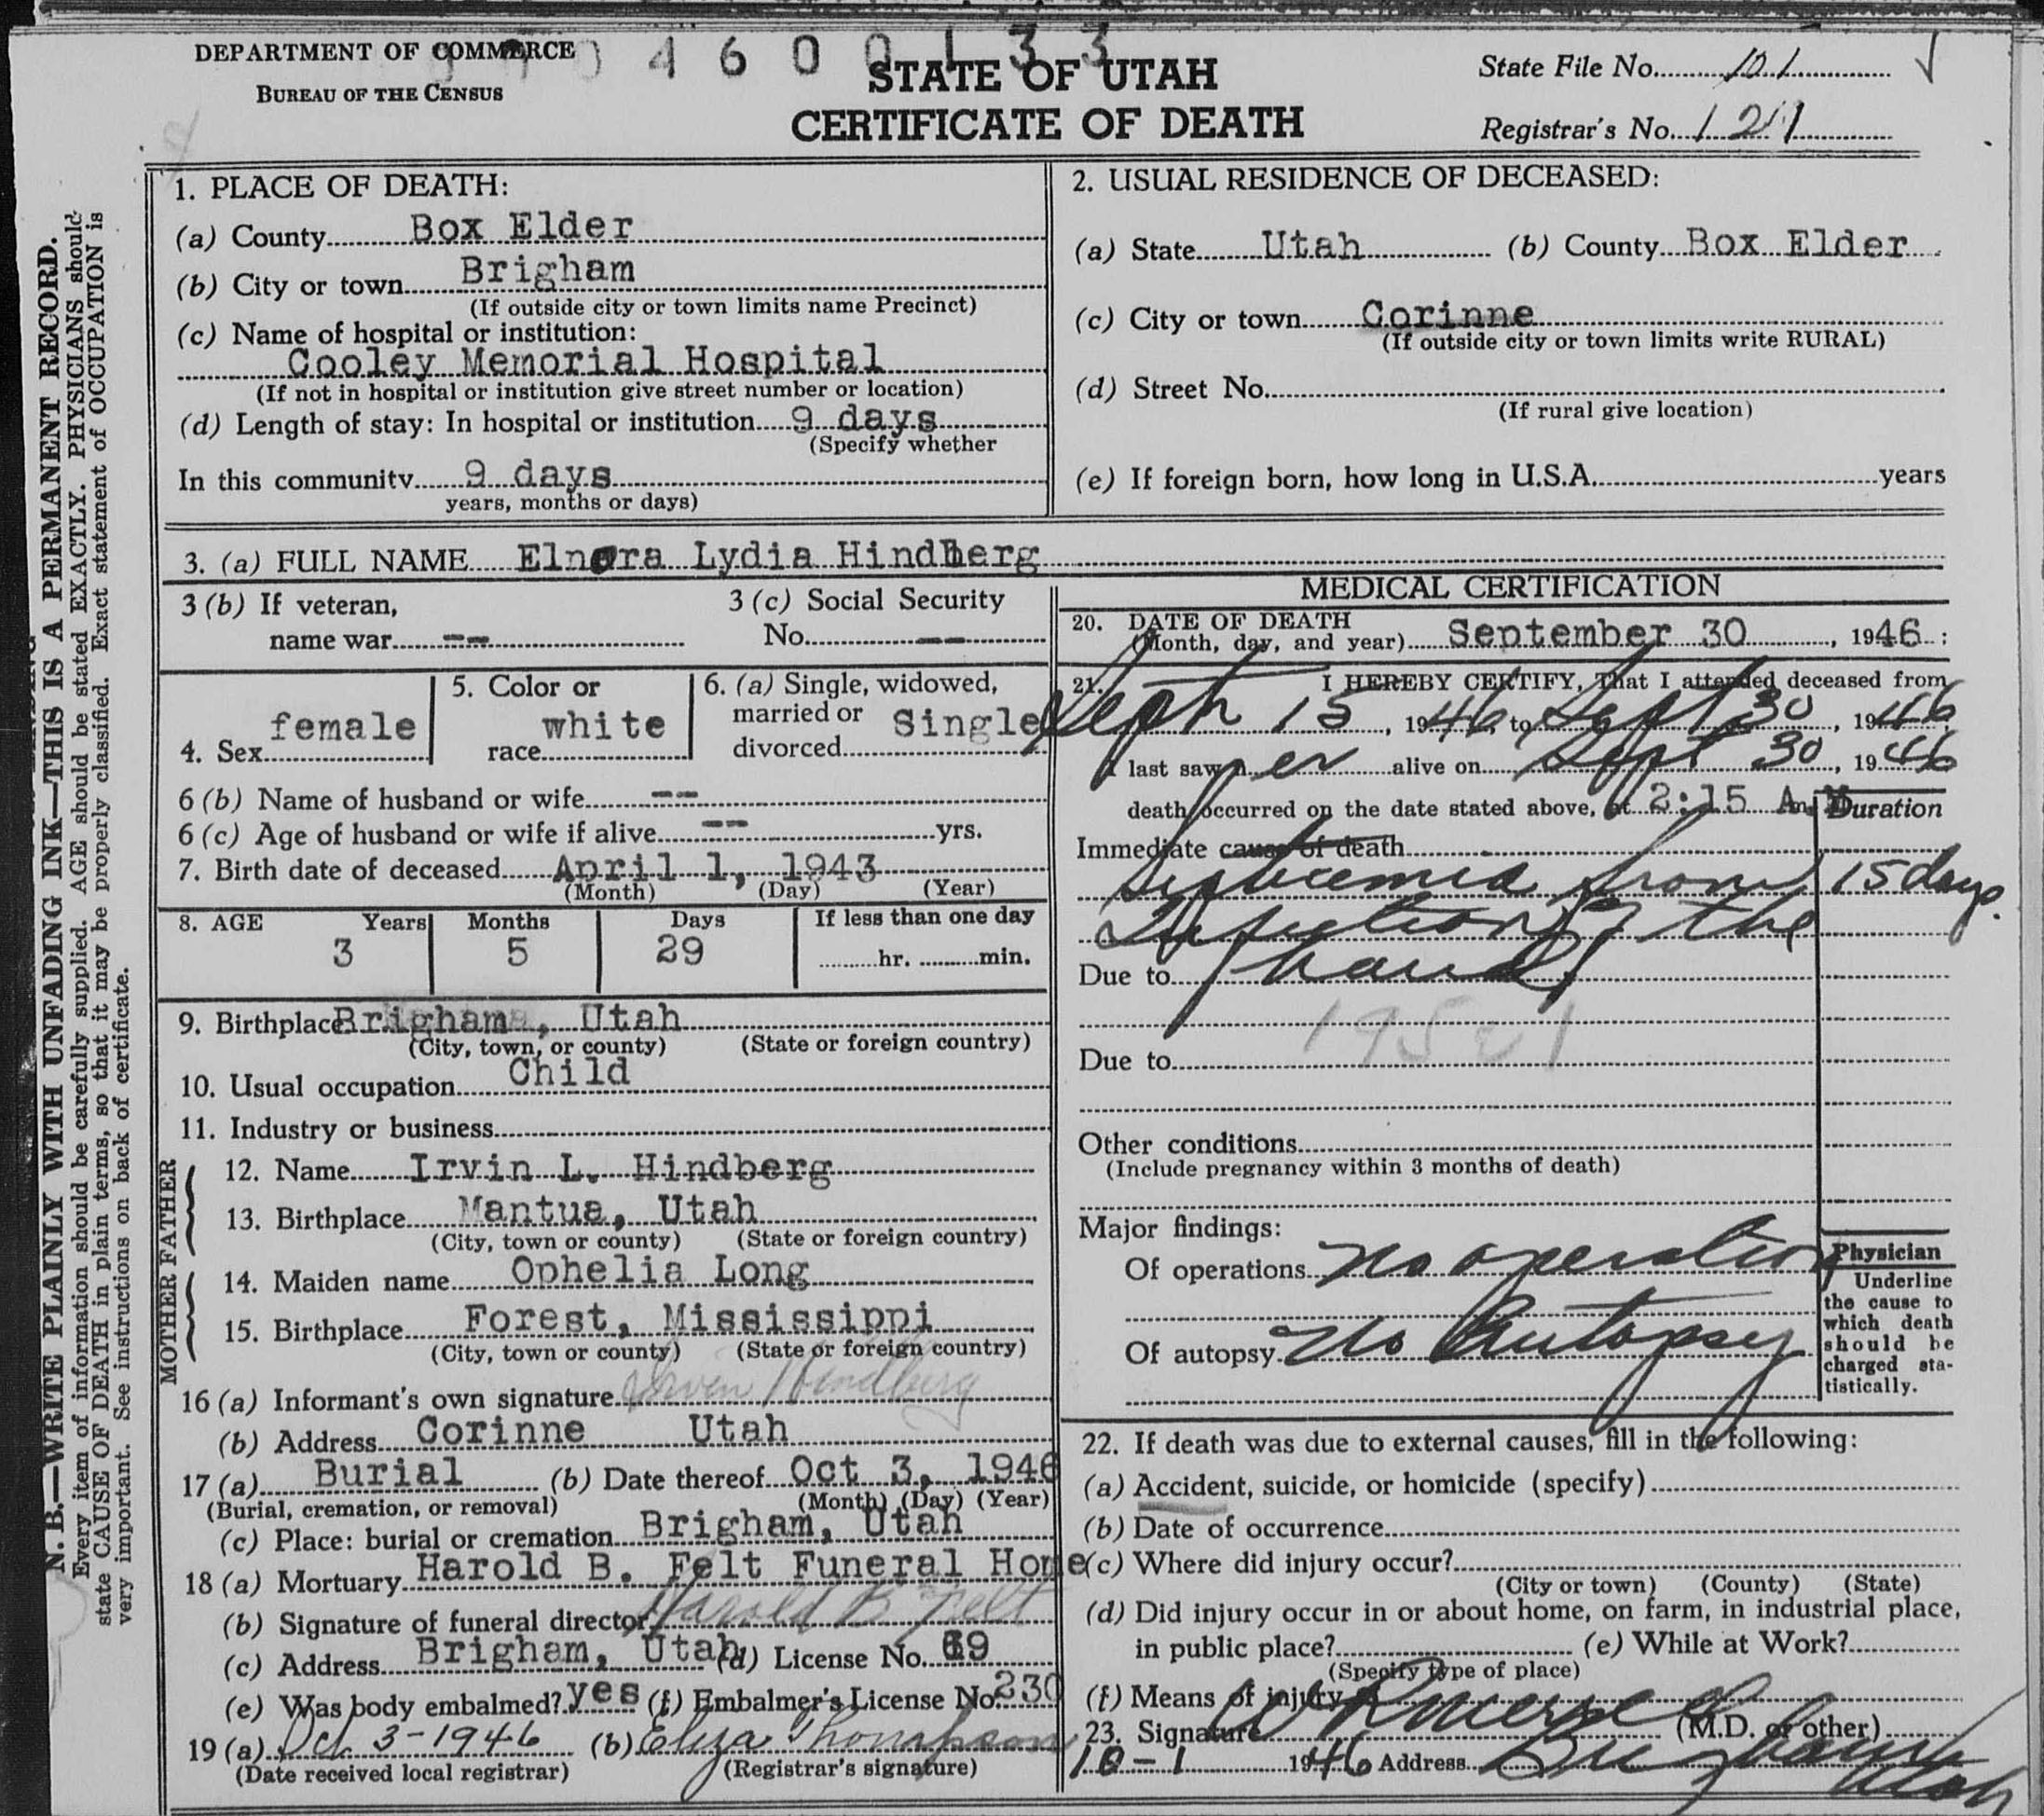 DEPARTMENT OF COMMERCE
BUREAU OF THE CENSUS
4 6 0 0 1 3 3
STATE OF UTAH
CERTIFICATE OF DEATH
State File No. 101
Registrar's No.
N. B.—WRITE PLAINLY WITH UNFADING INK—THIS IS A PERMANENT RECORD.
Every item of information should be carefully supplied. AGE should be stated EXACTLY. PHYSICIANS should
state CAUSE OF DEATH in plain terms, so that it may be properly classified. Exact statement of OCCUPATION is
very important. See instructions on back of certificate.
1. PLACE OF DEATH:
(a) County Box Elder
(b) City or town Brigham
(If outside city or town limits name Precinct)
(c) Name of hospital or institution:
Cooley Memorial Hospital
(If not in hospital or institution give street number or location)
(d) Length of stay: In hospital or institution 9 days
(Specify whether
In this community 9 days
years, months or days)
2. USUAL RESIDENCE OF DECEASED:
(a) State Utah (b) County Box Elder
(c) City or town Corinne
(If outside city or town limits write RURAL)
(d) Street No.
(If rural give location)
(e) If foreign born, how long in U.S.A. years
3. (a) FULL NAME Elnora Lydia Hindberg
3 (b) If veteran,
name war --
3 (c) Social Security
No. --
4. Sex female
5. Color or
race white
6. (a) Single, widowed,
married or
divorced Single
6 (b) Name of husband or wife --
6 (c) Age of husband or wife if alive -- yrs.
7. Birth date of deceased April 1, 1943
(Month) (Day) (Year)
8. AGE Years Months Days If less than one day
3 5 29 hr. min.
9. Birthplace Brigham, Utah
(City, town, or county) (State or foreign country)
10. Usual occupation Child
11. Industry or business
FATHER
12. Name Irvin L. Hindberg
13. Birthplace Mantua, Utah
(City, town or county) (State or foreign country)
MOTHER
14. Maiden name Ophelia Long
15. Birthplace Forest, Mississippi
(City, town or county) (State or foreign country)
16 (a) Informant's own signature Irvin Hindberg
(b) Address Corinne Utah
17 (a) Burial (b) Date thereof Oct 3, 1946
(Burial, cremation, or removal) (Month) (Day) (Year)
(c) Place: burial or cremation Brigham, Utah
18 (a) Mortuary Harold B. Felt Funeral Home
(b) Signature of funeral director Harold B Felt
(c) Address Brigham, Utah (d) License No. 69
(e) Was body embalmed? yes (f) Embalmer's License No. 230
19 (a) Oct. 3-1946 (b) Eliza Thompson
(Date received local registrar) (Registrar's signature)
MEDICAL CERTIFICATION
20. DATE OF DEATH
(Month, day, and year) September 30, 1946
21. I HEREBY CERTIFY, That I attended deceased from
Sept 15, 1946 to Sept 30, 1946
I last saw h er alive on Sept 30, 1946
death occurred on the date stated above, at 2:15 A m.
Duration
Immediate cause of death
Septicemia from 15 days.
Infection of the
Due to hand
Due to
Other conditions
(Include pregnancy within 3 months of death)
Major findings:
Of operations no operation
Of autopsy no Autopsy
Physician
Underline
the cause to
which death
should be
charged sta-
tistically.
22. If death was due to external causes, fill in the following:
(a) Accident, suicide, or homicide (specify)
(b) Date of occurrence
(c) Where did injury occur?
(City or town) (County) (State)
(d) Did injury occur in or about home, on farm, in industrial place,
in public place? (e) While at Work?
(Specify type of place)
(f) Means of injury
23. Signature (M.D. or other)
10-1 1946 Address Brigham Utah